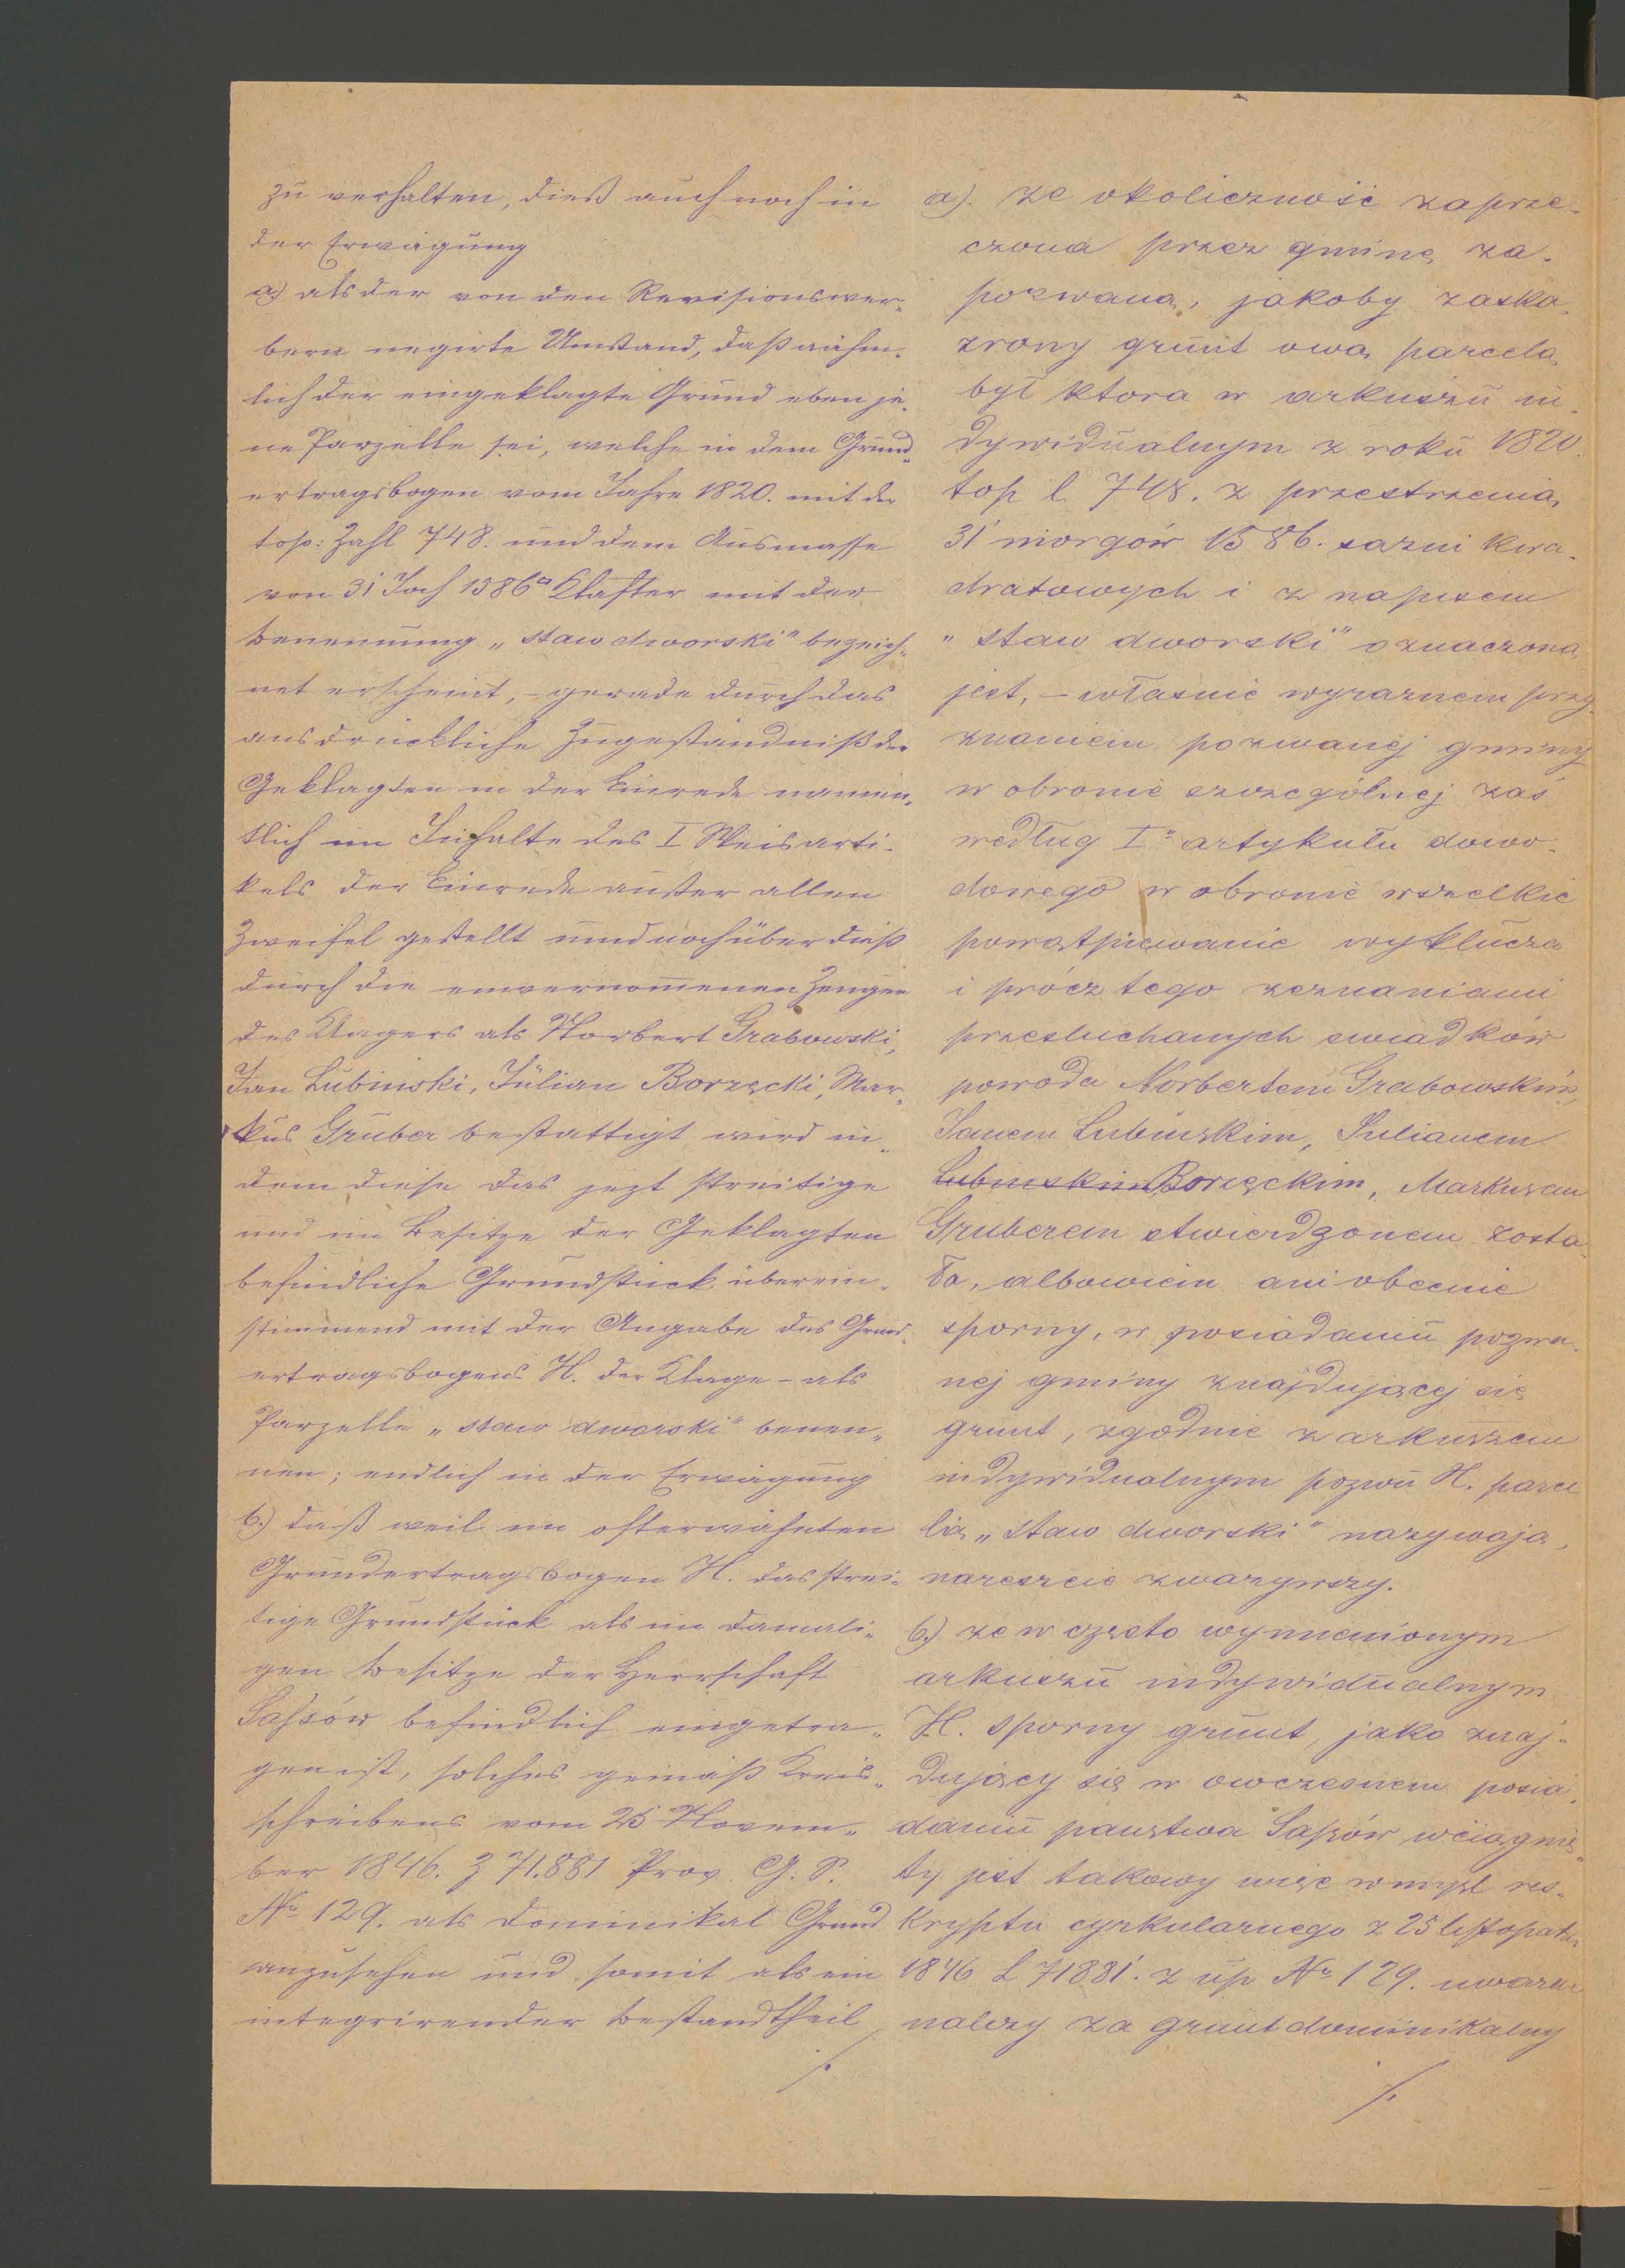 zu verhalten, dieß auch noch in
der Erwägung
a) als der von den Revisionswer-
bern negirte Umstand, daß nähm-
lich der eingeklagte Grund eben je-
ne Parzelle sei, welche in dem Grund-
ertragsbogen vom Jahre 1820. mit der
top: Zahl 748. und dem Ausmasse
von 31 Joch 1586□ Klafter mit der
Benennung „staw dworski" bezeich-
net erscheint, – gerade durch das
ausdrückliche Zugeständniß der
Geklagten in der Einrede namen-
tlich im Inhalte des I Weisarti-
kels der Einrede außer allen
Zweifel gestellt und noch überdieß
durch die einvernomenen Zeugen
des Klägers als Norbert Grabowski,
Jan Lubinski, Julian Borzęcki, Mar-
kus Gruber bestattigt wird in-
dem diese das jezt streitige
und im Besitze der Geklagten
befindliche Grundstück überein-
stimmend mit der Angabe des Grund-
ertragsbogens H. der Klage – als
Parzelle „staw dworski" benen-
nen; endlich in der Erwägung
b.) daß weil im ofterwähnten
Grundertragsbogen H. das strei-
tige Grundstück als im damali-
gen Besitze der Herrschaft
Sassów befindlich eingetra-
gen ist, solches gemäß Kreis-
schreibens vom 25 Novem-
ber 1846. Z 71.881 Prov. G. S.
No 129. als Dominikal Grund
anzusehen und somit als ein
integrirender Bestandtheil
./.
a). że okoliczność zaprze-
czona przez gminę za-
pozwaną, jakoby zaska-
rzony grunt ową parcelą
był ktora w arkuszu in-
dywidualnym z roku 1820.
top l 748. z przestrzenią
31 morgów 1586. sążni kwa-
dratowych i z napisem
„staw dworski" oznaczoną
jest, – własnie wyraznem przy-
znaniem pozwanéj gminy
w obronie szczególnej zaś
według Io artykułu dowo-
dowego w obronie wszelkie
powątpiewanie wyklucza
i prócz tego zeznaniami
przesłuchanych swiadków
powoda Norbertem Grabowskim,
Janem Lubinskim, Julianem
Lubinskim Borzęckim, Markusem
Gruberem stwierdzonem zosta-
ło, albowiem ani obecnie
sporny, w posiadaniu pozwa-
nej gminy znajdującej się
grunt, zgodnie z arkuszem
indywidualnym pozwu H. parce
lią „staw dworski" nazywają,
nareszcie zwazywszy.
b.) ze w często wymienionym
arkuszu indywidualnym
H. sporny grunt, jako znaj-
dujący się w owczesnem posia-
daniu panstwa Sassów wciągnię-
ty jest takowy więc w mysl res-
kryptu cyrkularnego z 25 listopada
1846 L 71881. z up No 129. uwazac
nalezy za grunt dominikalny
./.